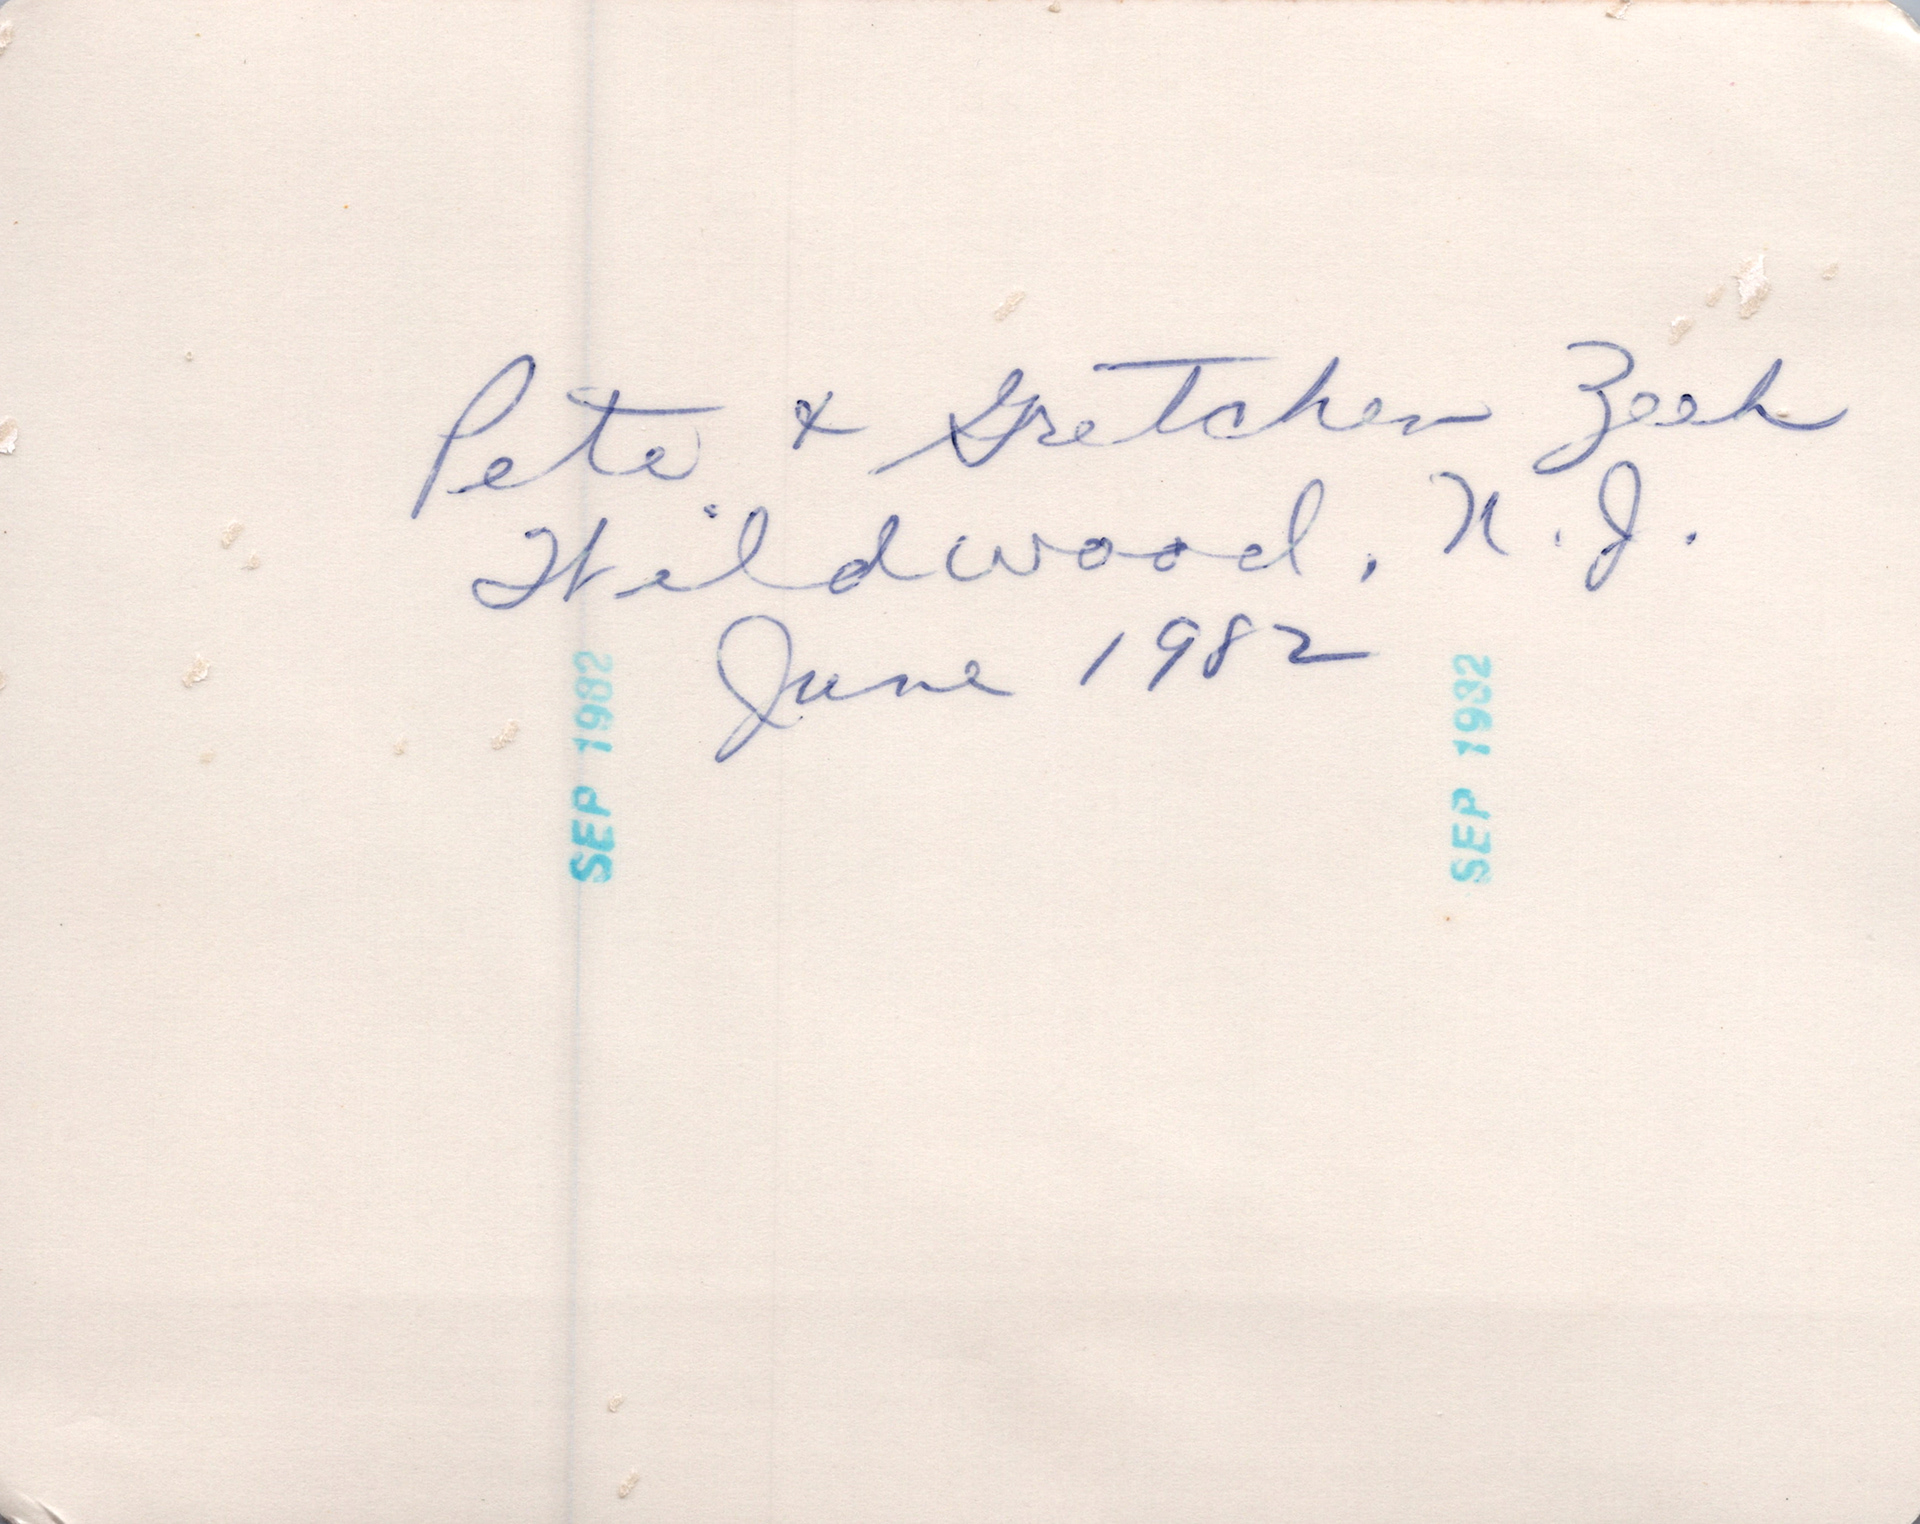 Pete & Gretchen Zeeh
Wildwood, N.J.
June 1982
SEP 1982
SEP 1982